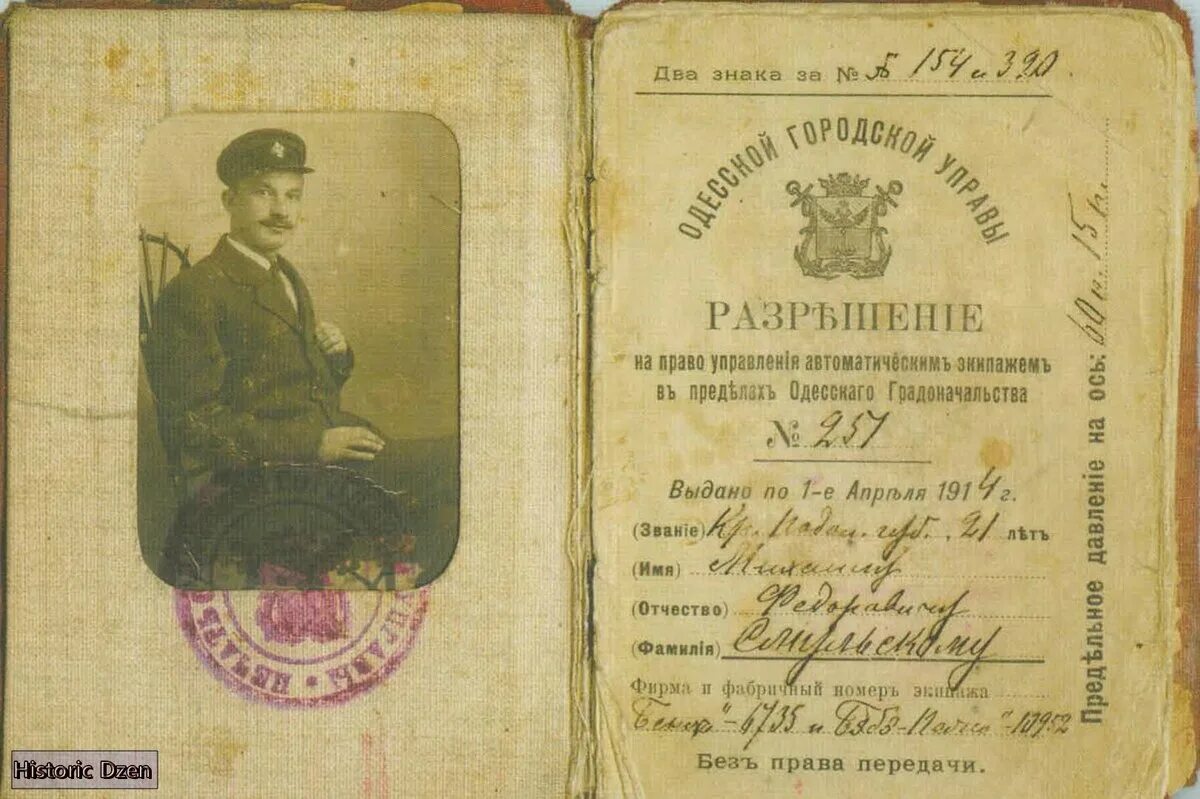 Два знака за № 154 и 390
ОДЕССКОЙ ГОРОДСКОЙ УПРАВЫ
РАЗРѢШЕНІЕ
на право управленія автоматическимъ экипажемъ
въ предѣлахъ Одесскаго Градоначальства
№ 251
Выдано по 1-е Апрѣля 1914 г.
(Званіе) Кр. Подол. губ. 21 лѣтъ
(Имя) Михаилу
(Отчество) Федоровичу
(Фамилія) Смульскому
Фирма и фабричный номеръ экипажа
"Бенц" - 6735 и Бэбэ-Пежо" - 10952
Безъ права передачи.
Предѣльное давленіе на ось: 60 п. 15
ПЕЧАТЬ УПРАВЫ
Historic Dzen